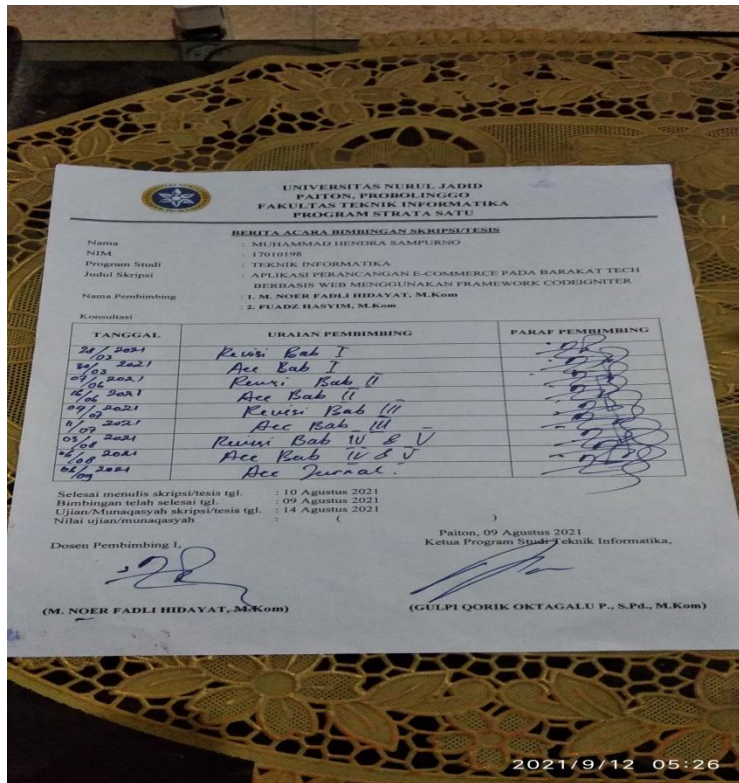 UNIVERSITAS NURUL JADID
PAITON, PROBOLINGGO
FAKULTAS TEKNIK INFORMATIKA
PROGRAM STRATA SATU
BERITA ACARA BIMBINGAN SKRIPSI/TESIS
Nama : MUHAMMAD HENDRA SAMPURNO
NIM : 17010198
Program Studi : TEKNIK INFORMATIKA
Judul Skripsi : APLIKASI PERANCANGAN E-COMMERCE PADA BARAKAT TECH
BERBASIS WEB MENGGUNAKAN FRAMEWORK CODEIGNITER
Nama Pembimbing : 1. M. NOER FADLI HIDAYAT, M.Kom
: 2. FUADZ HASYIM, M.Kom
Konsultasi
TANGGAL URAIAN PEMBIMBING PARAF PEMBIMBING
28/03 2021 Revisi Bab I
30/03 2021 Acc Bab I
07/06 2021 Revisi Bab II
16/06 2021 Acc Bab II
09/07 2021 Revisi Bab III
/07 2021 Acc Bab III
03/08 2021 Revisi Bab IV & V
06/08 2021 Acc Bab IV & V
/09 2021 Acc Jurnal.
Selesai menulis skripsi/tesis tgl. : 10 Agustus 2021
Bimbingan telah selesai tgl. : 09 Agustus 2021
Ujian/Munaqasyah skripsi/tesis tgl. : 14 Agustus 2021
Nilai ujian/munaqasyah : ( )
Paiton, 09 Agustus 2021
Dosen Pembimbing I, Ketua Program Studi Teknik Informatika,
(M. NOER FADLI HIDAYAT, M.Kom) (GULPI QORIK OKTAGALU P., S.Pd., M.Kom)
2021/9/12 05:26